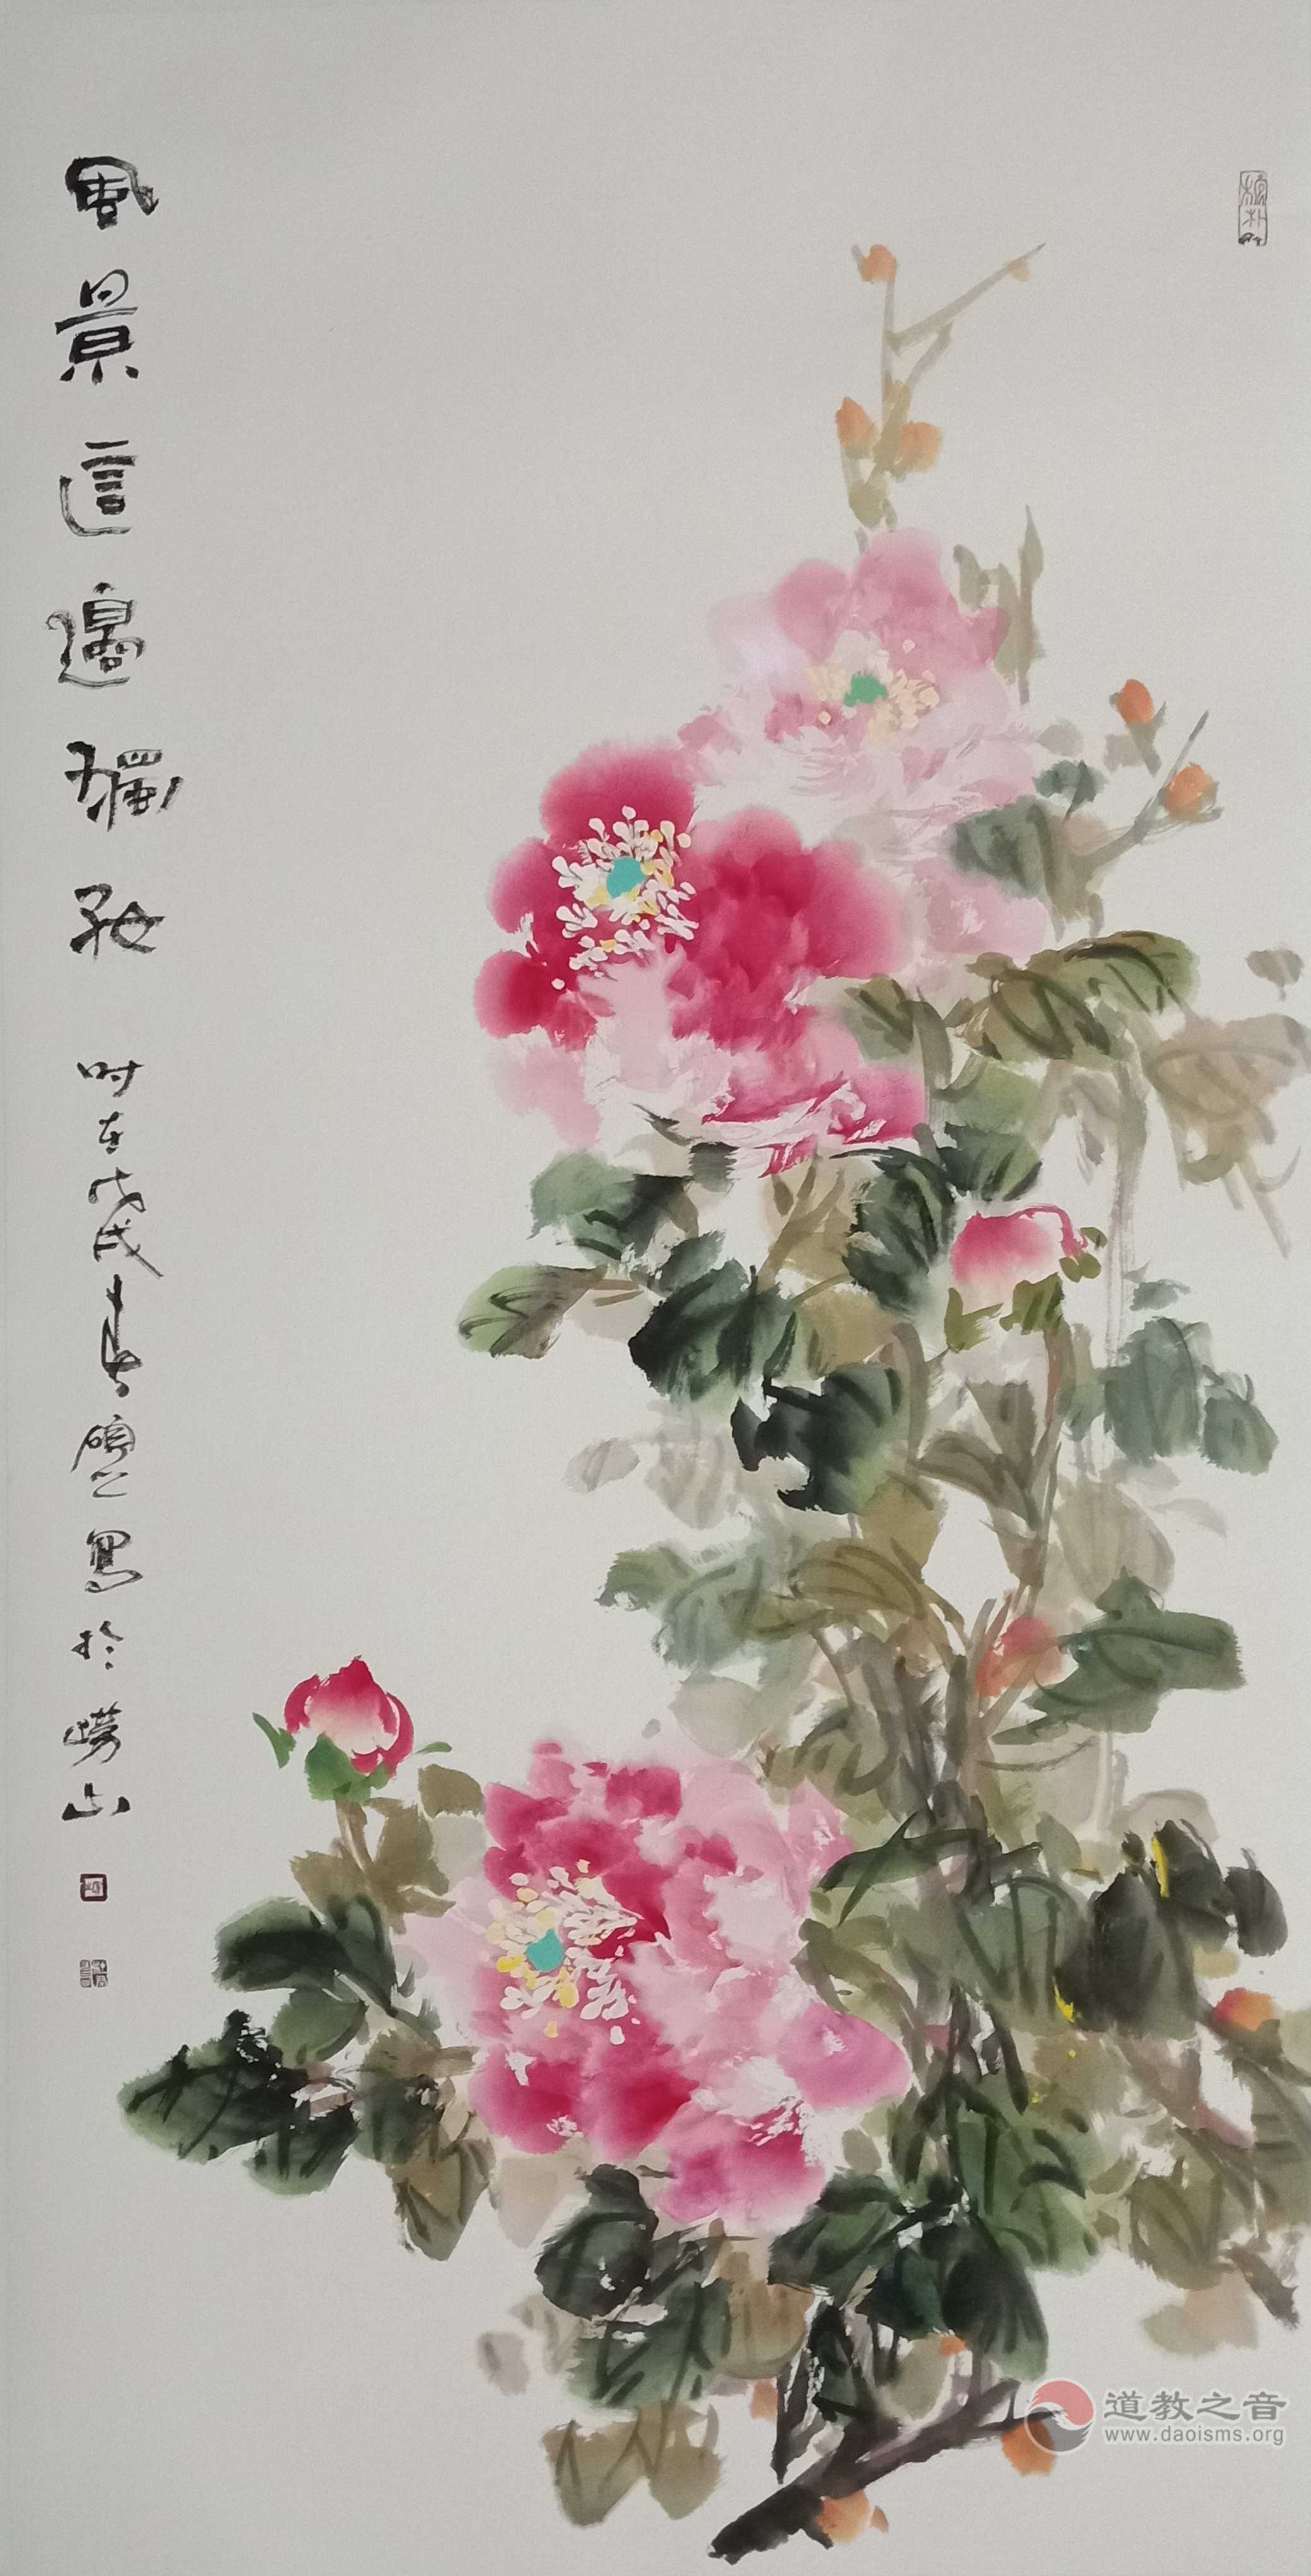 風景這邊獨好
時在戊戌春 寫於嶗山
道教之音
www.daoisms.org